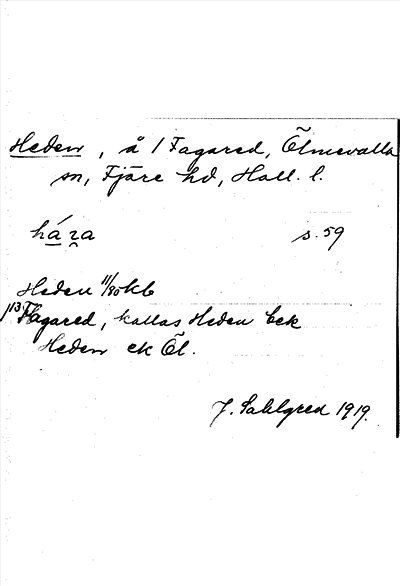 Heden, å 1 Fagared, Ölmevalla
sn, Fjäre hd, Hall. l.
háꝛa s. 59
Heden 11/80 kb
1/3 Fagared, kallas Heden bek
Heden ek Öl.
J. Sahlgren 1919.